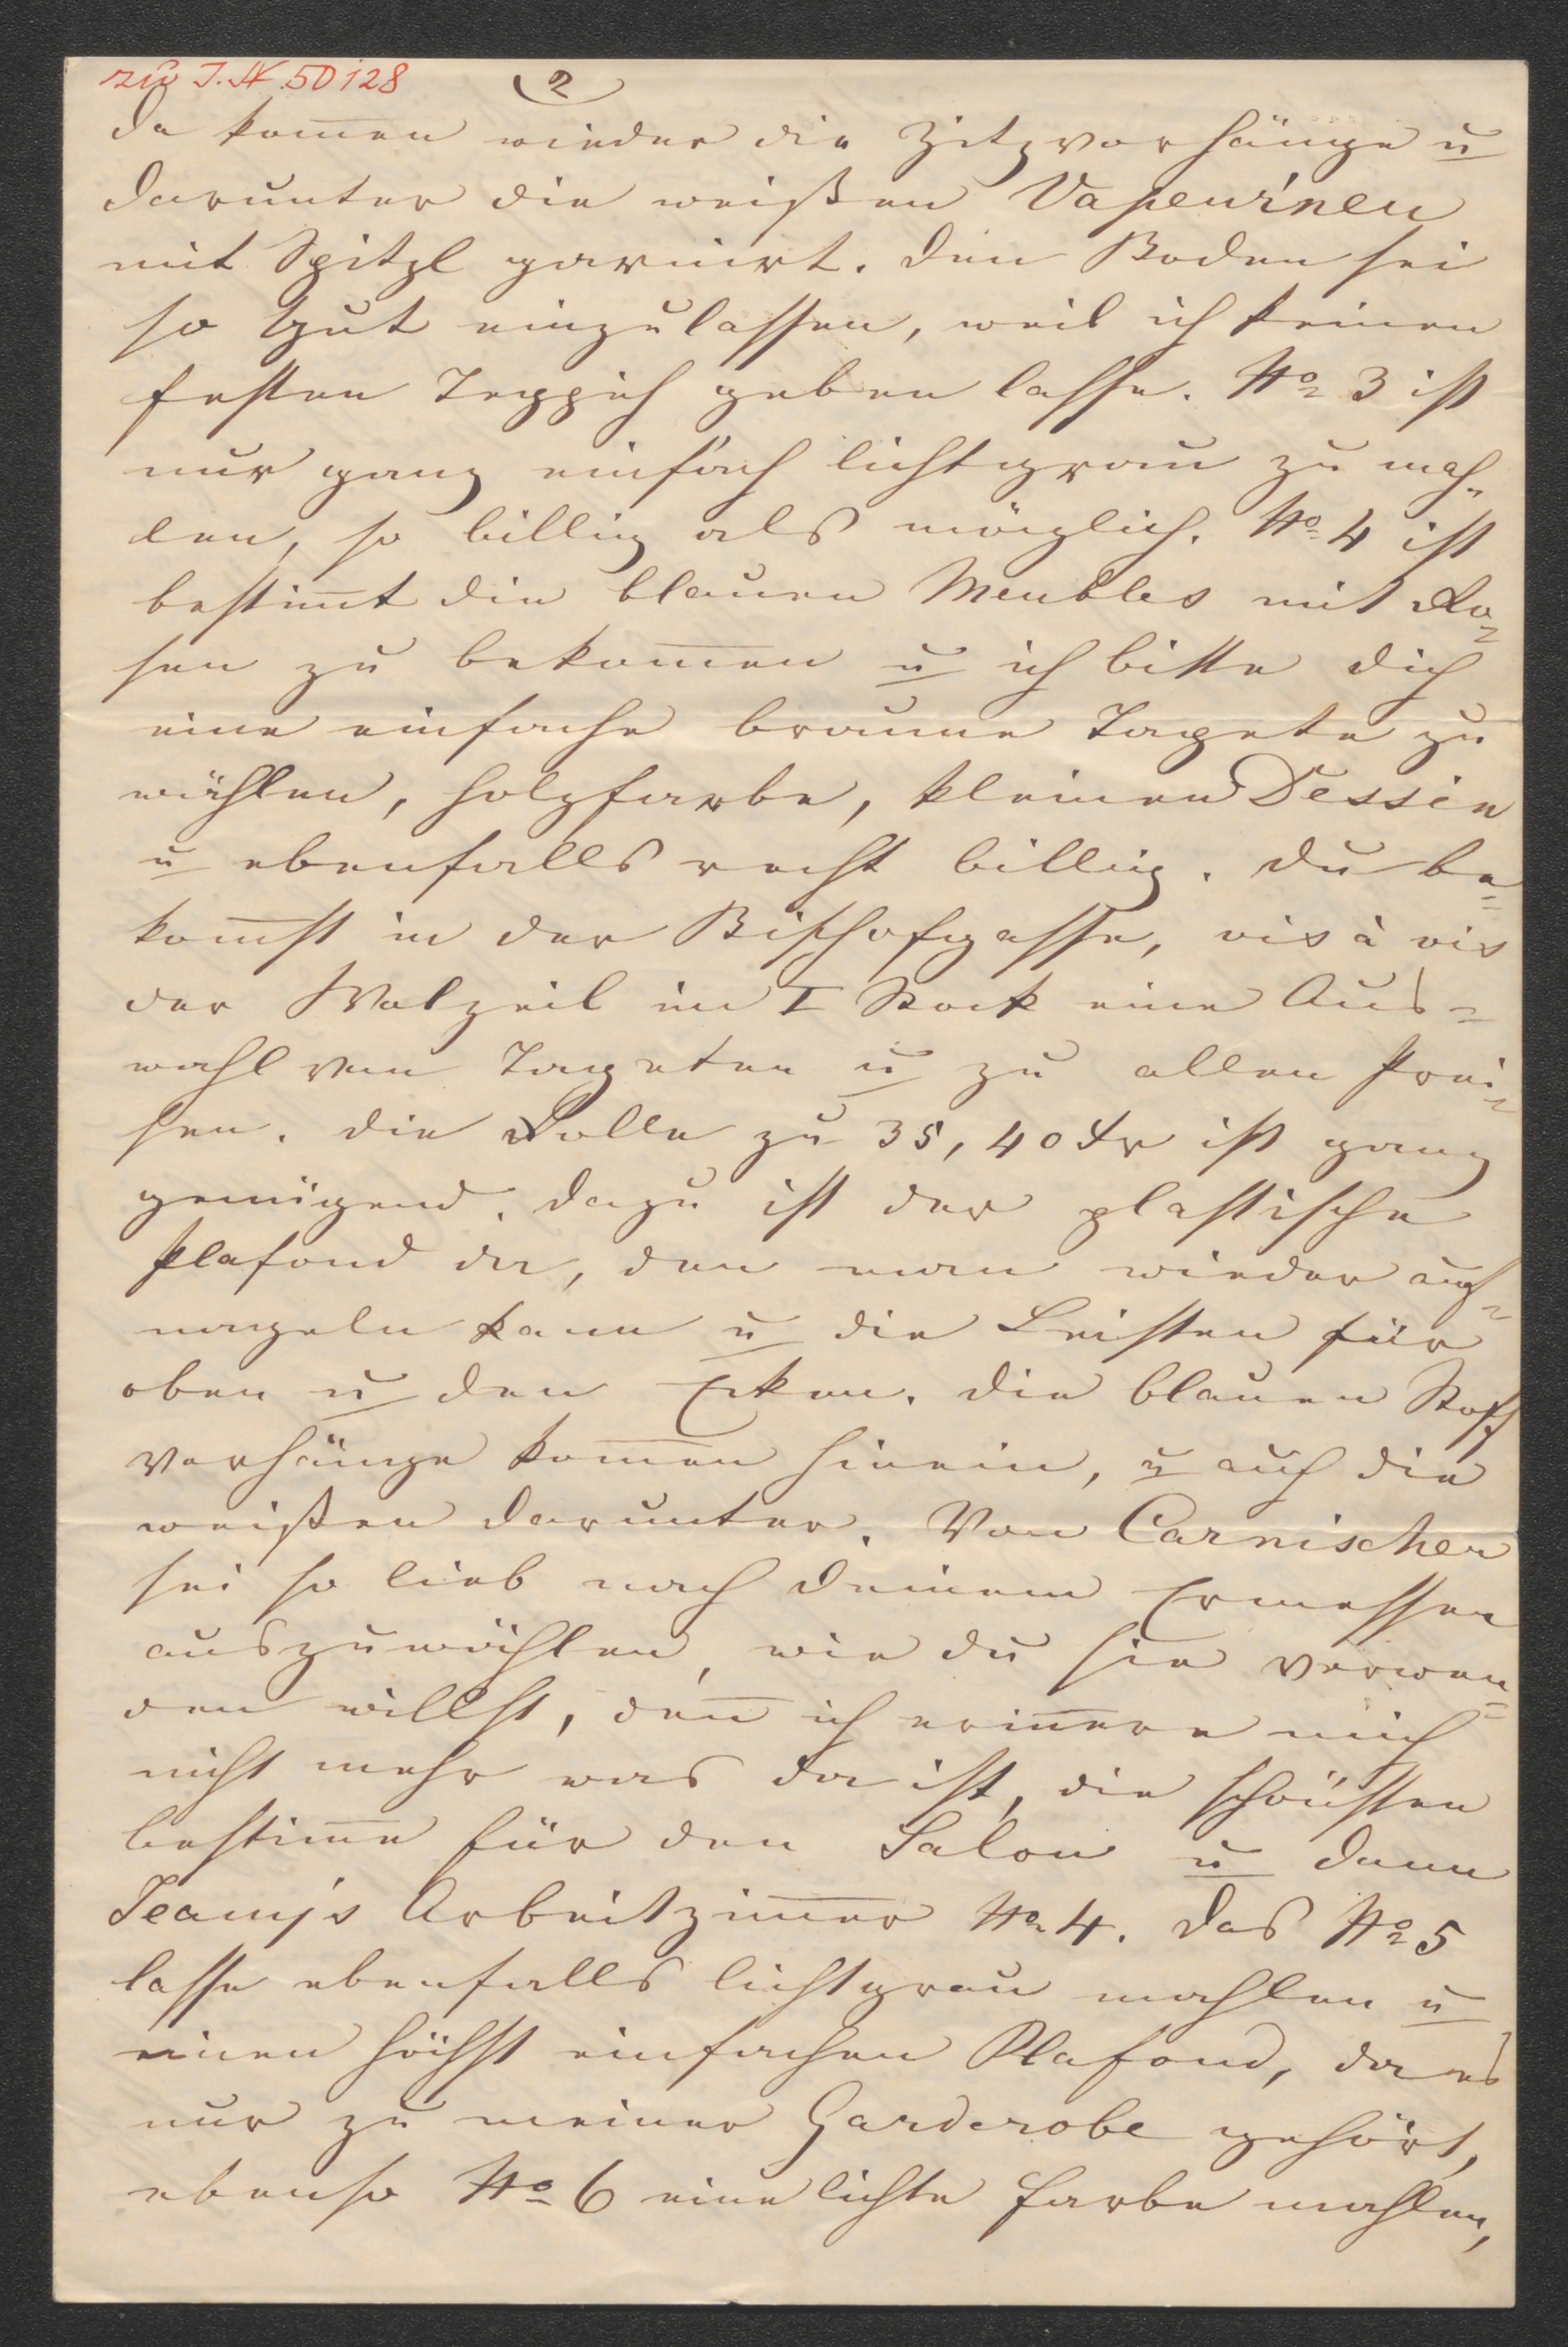 zu I.N. 50128
2
da kom̅en wieder die Zitzvorhänge u
darunter die weißen Vapeurinen
mit Spitzl garnirt. Den Boden sei
so gut einzulassen, weil ich keinen
festen Teppich geben lasse. No 3 ist
nur ganz einfach lichtgrau zu mah-
len, so billig als möglich. No 4 ist
bestim̅t die blauen Meubles mit Ro-
sen zu bekom̅en u ich bitte dich
eine einfache braune Tapete zu
wählen, holzfarbe, kleinen Dessin
u ebenfalls recht billig. Du be-
kom̅st in der Bischofgasse, vis à vis
der Wolzeil im I Stock eine Aus-
wahl von Tapeten u zu allen Prei-
sen. Die Rolle zu 35, 40 Xr ist ganz
genügend. Dazu ist der plastische
Plafond da, den man wieder auf-
nageln kann u die Leisten für
oben u den Ecken. Die blauen Stoff
vorhänge kom̅en hinein, u auch die
weißen darunter. Von Carnischen
sei so lieb nach deinem Ermessen
auszuwählen, wie du sie verwen-
den willst, den̅ ich erin̅ere mich
nicht mehr was da ist, die schönsten
bestim̅e für den Salon u dann
Jeany's Arbeitzim̅er No 4. Das No 5
lasse ebenfalls lichtgrau mahlen u
einen höchst einfachen Plafond, da es
nur zu meiner Garderobe gehört,
ebenso No 6 eine lichte Farbe mahlen,